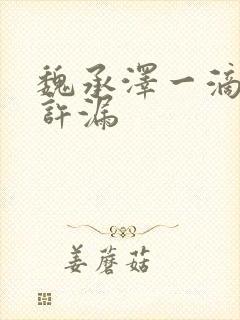 魏承澤一滴
許漏
姜蘑菇